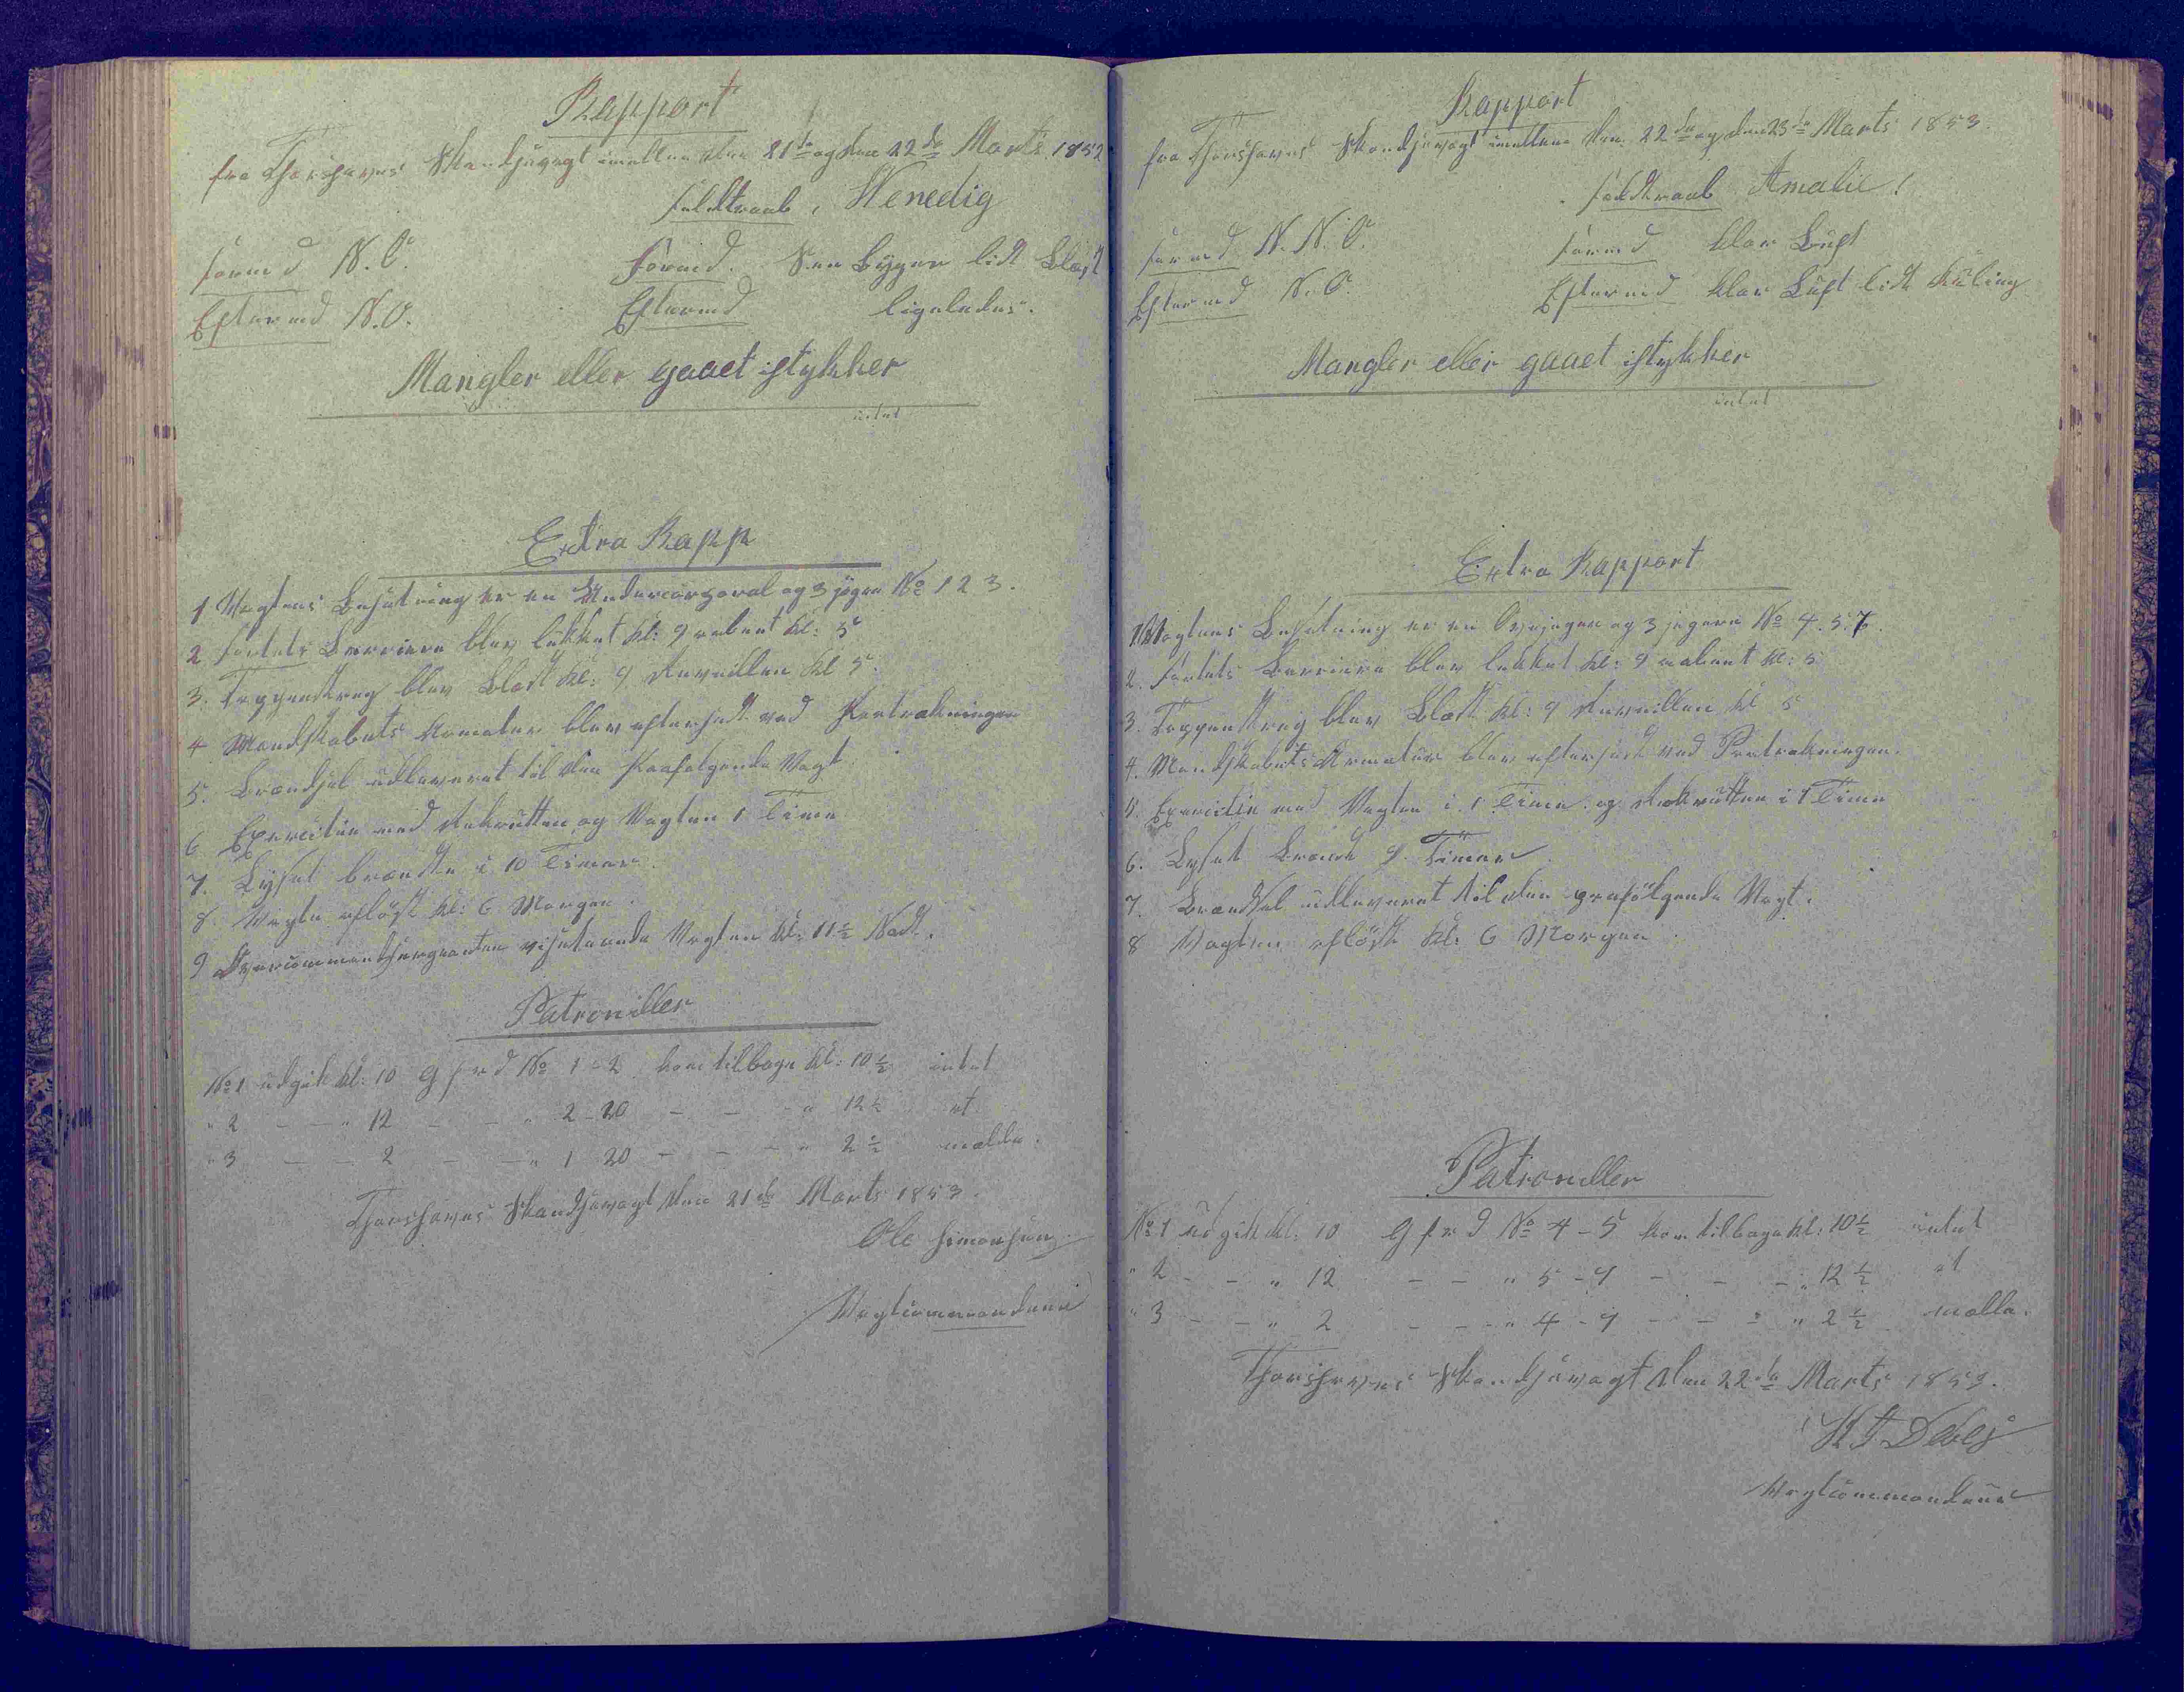 Rapport
fra Thorshavns Skandsevagt imellem den 21de og den 22de Marts 1853
Feldtraab, Wenedig
Formd N.O. Formd. Snee Byger lidt Blæst
Eftermd N.O. Eftermd ligeledes.
Mangler eller gaaet istykker
intet
Extra Rapp
1 Vagtens Besætning er en Undercorporal og 3 jægere No 1 2 3.
2 Fortets Barriere blev lukket Kl: 9 aabnet Kl: 5
3. Tappenstreg blev Blæst Kl: 9 Reveillen Kl 5.
4 Mandskabets Armatur blev efterseet ved Fratrækningen
5. Brændsel udleveret til den Paafølgende Vagt.
6 Exercitie med Rekrutten og Vagten 1 Time
7. Lyset brændte i 10 Timer.
8. Vagten afløst Kl: 6 Morgen.
9 Overcommandsergeanten visiterede Vagten Kl: 11½ Nat.
Patrouiller
No 1 udgik Kl: 10 G f r d No 1-2 kom tilbage Kl: 10½ intet
" 2 - - " 12 - - " 2-20 - - - " 12½ at
" 3 - - 2 - - " 1-20 - - - " 2½ melde.
Thorshavns Skandsevagt den 21de Marts 1853.
Ole Simonsen
Vagtcommandeur
Rapport
fra Thorshavns Skandsevagt imellem den 22de og den 23de Marts 1853.
Feldtraab Amalie!
Formd N.N.O. Formd klar Luft
Eftermd N.O. Eftermd klar Luft lidt Kuling
Mangler eller gaaet istykker
intet
Extra Rapport
1. Vagtens Besætning er en Overjæger og 3 jægere No 4. 5. 7.
2. Fortets Barriere blev lukket Kl: 9 aabnet Kl: 5
3. Tappenstreg blev Blæst Kl: 9 Reveillen Kl 5
4. Mandskabets Armatur blev efterseet ved Fratrækningen.
5. Exercitie med Vagten i 1 Time og Rekrutten i 1 Time
6. Lyset Brændt 9 Timer
7. Brændsel udleveret til den paafølgende Vagt.
8 Vagten afløst Kl: 6 Morgen.
Patrouiller
No 1 udgik Kl: 10 G f r d No 4-5 kom tilbage Kl: 10½ intet
" 2 - - " 12 - - " 5-7 - - - " 12½ at
" 3 - - " 2 - - - " 4-7 - - - " 2½ melde.
Thorshavns Skandsevagt den 22de Marts 1853.
Debes
Vagtcommandeur